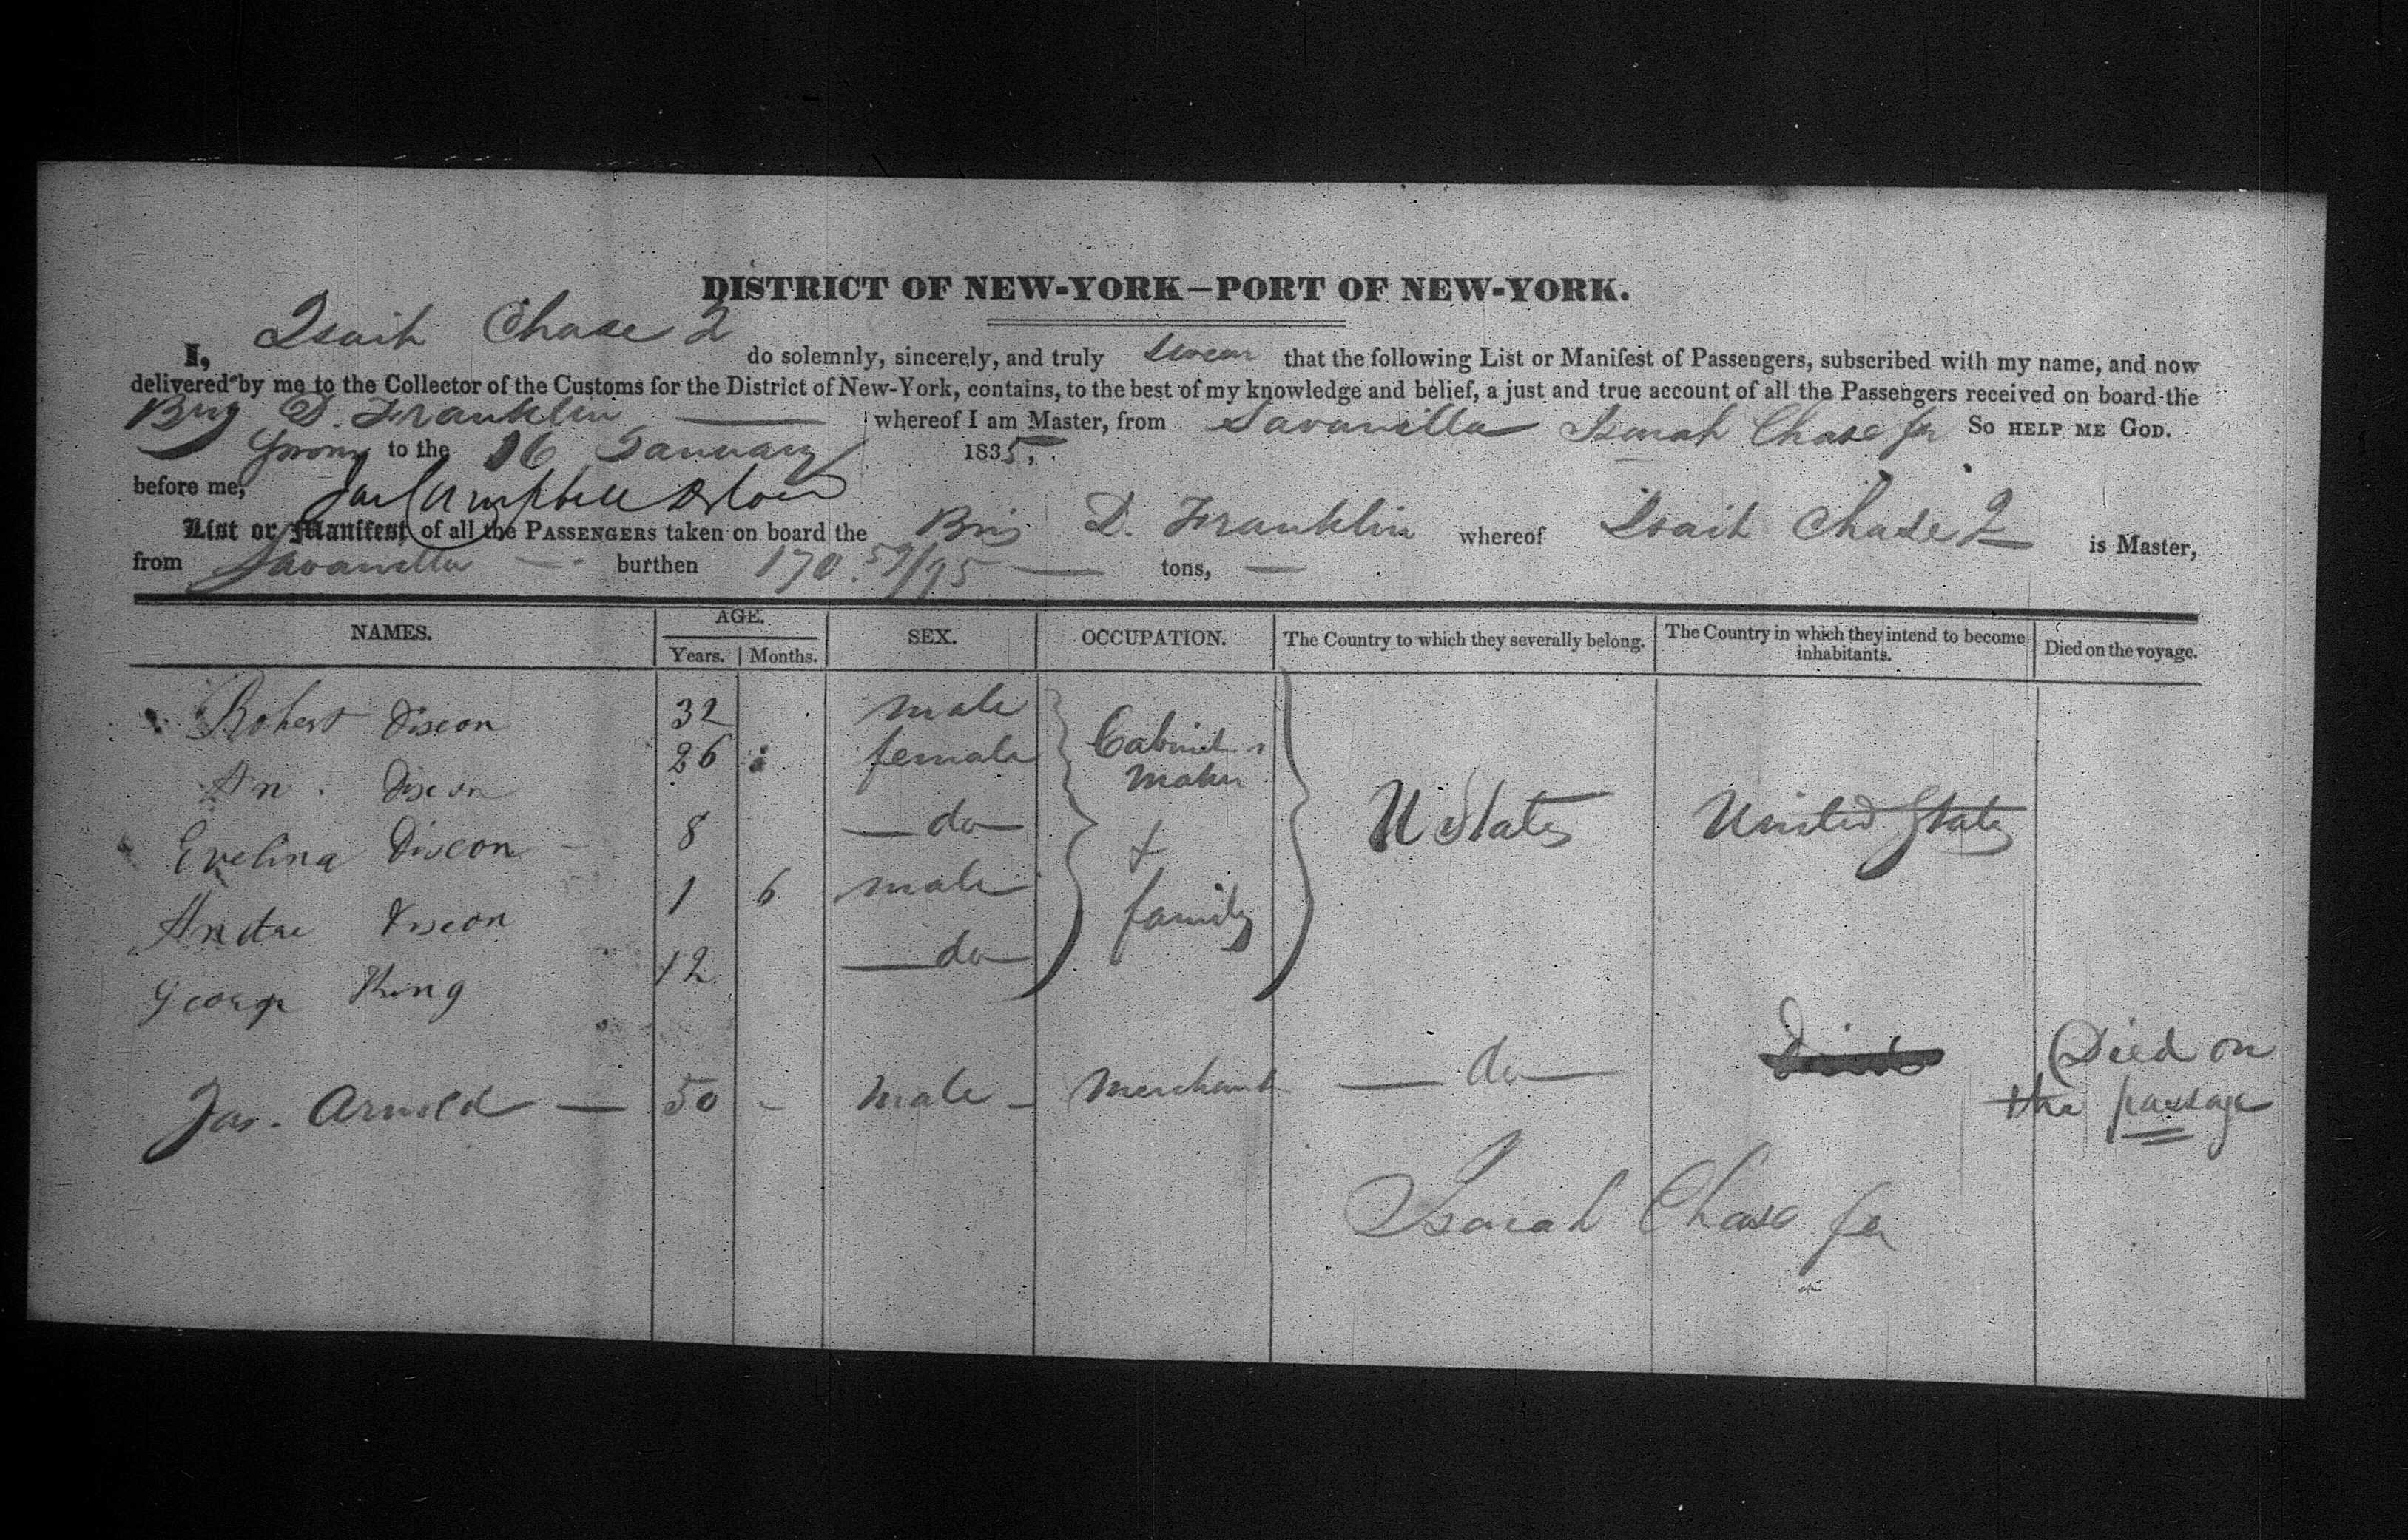 DISTRICT OF NEW-YORK—PORT OF NEW-YORK.
I, Isaih Chase 2 do solemnly, sincerely, and truly swear that the following List or Manifest of Passengers, subscribed with my name, and now
delivered by me to the Collector of the Customs for the District of New-York, contains, to the best of my knowledge and belief, a just and true account of all the Passengers received on board the
Brig D. Franklin whereof I am Master, from Savanilla Isaiah Chase Jr So HELP ME GOD.
to the 16 January 1835,
before me,
List or Manifest of all the PASSENGERS taken on board the Brig D. Franklin whereof Isaih Chase 2 is Master,
from Savanilla burthen 170.59/95 tons,
NAMES. AGE. SEX. OCCUPATION. The Country to which they severally belong. The Country in which they intend to become inhabitants. Died on the voyage.
Years. Months.
Robert Discon 32 male Cabinet Maker
An. Discon 26 female
Evelina Discon 8 do + family U States United States
Discon 1 6 male
George King 12 do
Jas. Arnold 50 male Merchant do Died on
the passage
Isaiah Chase Jr